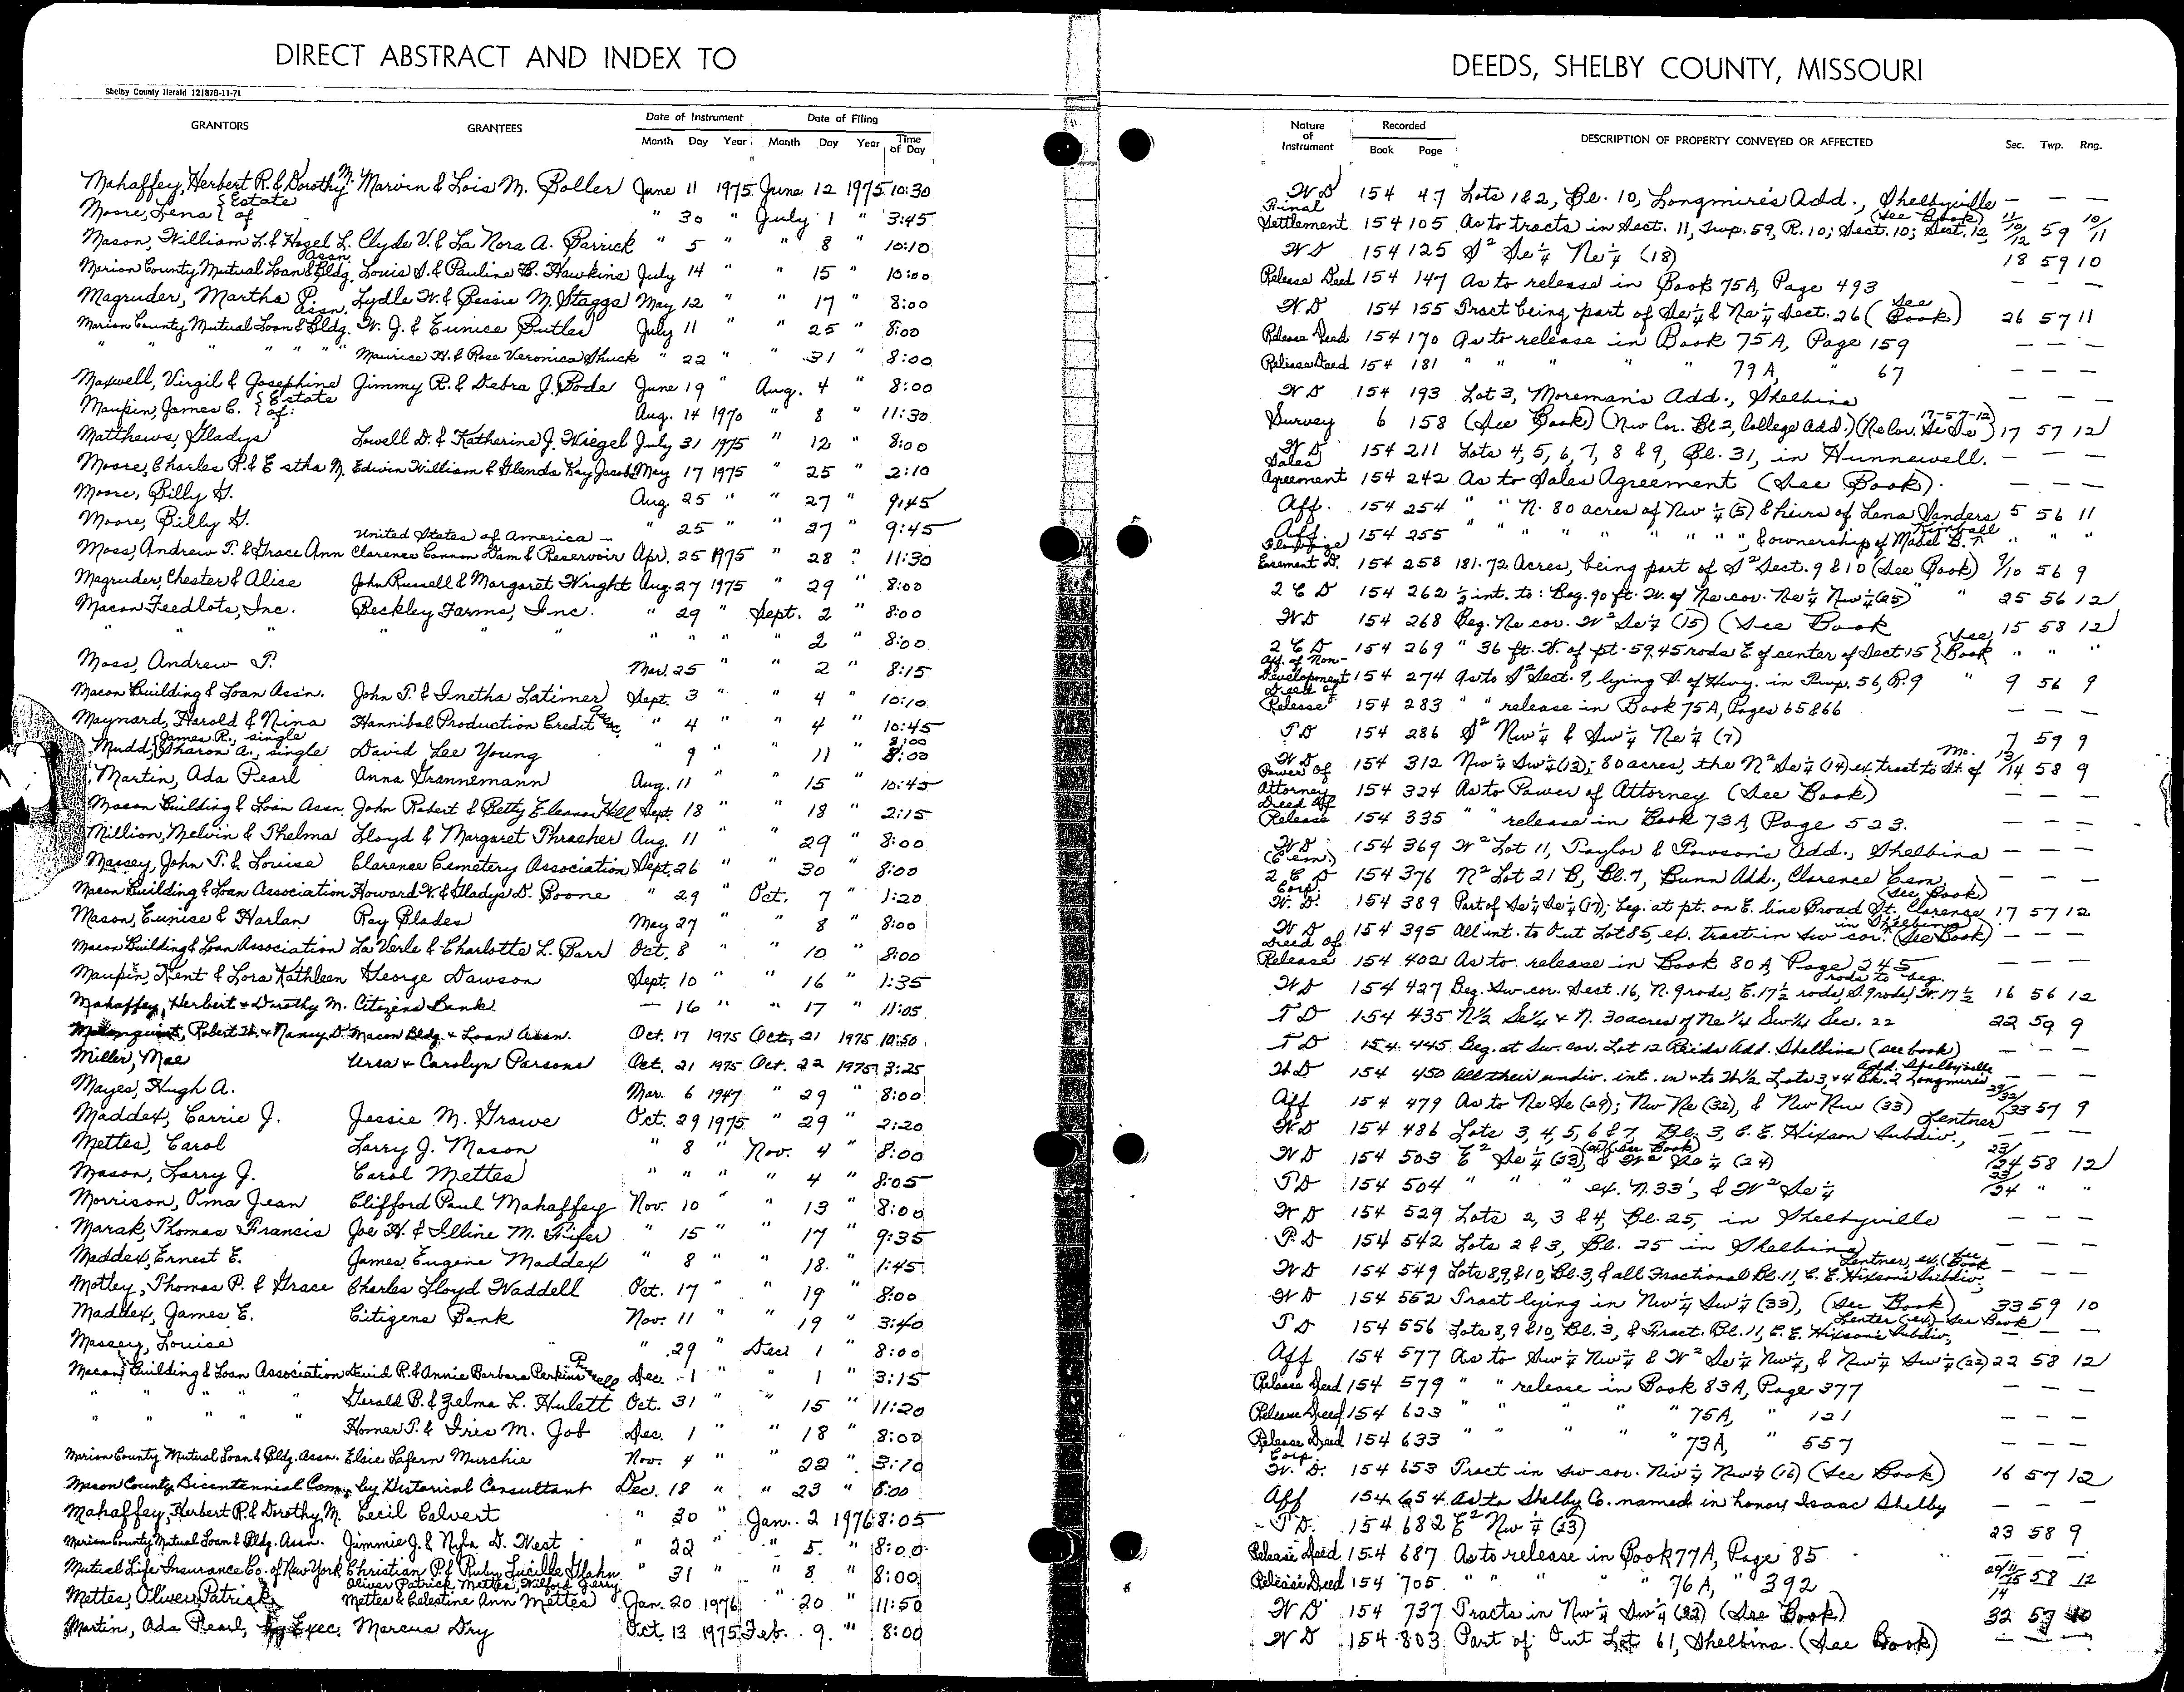 DIRECT ABSTRACT AND INDEX TO
Shelby County Herald 12187B-11-71
GRANTORS GRANTEES Date of Instrument Date of Filing
Month Day Year Month Day Year Time of Day
Mahaffey, Herbert R. & Dorothy M. Marvin & Lois M. Boller June 11 1975 June 12 1975 10:30
Moore, Lena { Estate of " 30 " July 1 " 3:45
Mason, William L. & Hazel L. Clyde V. & La Nora A. Parrick " 5 " " 8 " 10:10
Marion County Mutual Loan & Bldg. Assn. Louis S. & Pauline B. Hawkins July 14 " " 15 " 10:00
Magruder, Martha P. Lydle W. & Bessie M. Staggs May 12 " " 17 " 8:00
Marion County Mutual Loan & Bldg. Assn. W. J. & Eunice Butler July 11 " " 25 " 8:00
" " " " " " Maurice H. & Rose Veronica Shuck " 22 " " 31 " 8:00
Maxwell, Virgil & Josephine Jimmy R. & Debra J. Bode June 19 " Aug. 4 " 8:00
Maupin, James C. { Estate of: Aug. 14 1970 " 8 " 11:30
Matthews, Gladys Lowell D. & Katherine J. Wiegel July 31 1975 " 12 " 8:00
Moore, Charles R. & Estha M. Edwin William & Glenda Kay Jacobs May 17 1975 " 25 " 2:10
Moore, Billy G. Aug. 25 " " 27 " 9:45
Moore, Billy G. " 25 " " 27 " 9:45
Moss, Andrew T. & Grace Ann United States of America - Clarence Cannon Dam & Reservoir Apr. 25 1975 " 28 " 11:30
Magruder, Chester & Alice John Russell & Margaret Wright Aug. 27 1975 " 29 " 8:00
Macon Feedlots, Inc. Beckley Farms, Inc. " 29 " Sept. 2 " 8:00
" " " " " " " " " 2 " 8:00
Moss, Andrew T. Mar. 25 " " 2 " 8:15
Macon Building & Loan Assn. John T. & Inetha Latimer Sept. 3 " " 4 " 10:10
Maynard, Harold & Nina Hannibal Production Credit Assn. " 4 " " 4 " 10:45
Mudd, { James R., single Sharon A., single David Lee Young " 9 " " 11 " 8:00
Martin, Ada Pearl Anna Grannemann Aug. 11 " " 15 " 10:45
Macon Building & Loan Assn. John Robert & Betty Eleanor Hill Sept. 18 " " 18 " 2:15
Million, Melvin & Thelma Lloyd & Margaret Thrasher Aug. 11 " " 29 " 8:00
Massey, John T. & Louise Clarence Cemetery Association Sept. 26 " " 30 " 8:00
Macon Building & Loan Association Howard W. & Gladys D. Boone " 29 " Oct. 7 " 1:20
Mason, Eunice & Harlan Ray Blades May 27 " " 8 " 8:00
Macon Building & Loan Association La Verle & Charlotte L. Barr Oct. 8 " " 10 " 8:00
Maupin, Kent & Lora Kathleen George Dawson Sept. 10 " " 16 " 1:35
Mahaffey, Herbert & Dorothy M. Citizens Bank. — 16 " " 17 " 11:05
Robert W. & Nancy D. Macon Bldg. & Loan Assn. Oct. 17 1975 Oct. 21 1975 10:50
Miller, Mae Ursa & Carolyn Parsons Oct. 21 1975 Oct. 22 1975 3:25
Mayes, Hugh A. Mar. 6 1947 " 29 " 8:00
Maddex, Carrie J. Jessie M. Grawe Oct. 29 1975 " 29 " 2:20
Mettes, Carol Larry J. Mason " 8 " Nov. 4 " 8:00
Mason, Larry J. Carol Mettes " " " " 4 " 8:05
Morrison, Oma Jean Clifford Paul Mahaffey Nov. 10 " " 13 " 8:00
Marak, Thomas Francis Joe H. & Illine M. Fifer " 15 " " 17 " 9:35
Maddex, Ernest E. James Eugene Maddex " 8 " " 18. " 1:45
Motley, Thomas P. & Grace Charles Lloyd Waddell Oct. 17 " " 19 " 8:00
Maddex, James E. Citizens Bank Nov. 11 " " 19 " 3:40
Massey, Louise " 29 " Dec. 1 " 8:00
Macon Building & Loan Association David R. & Annie Barbara Perkins Dec. 1 " " 1 " 3:15
" " " " " Gerald B. & Zelma L. Hulett Oct. 31 " " 15 " 11:20
" " " " " Homer T. & Iris M. Job Dec. 1 " " 18 " 8:00
Marion County Mutual Loan & Bldg. Assn. Elsie Lafern Murchie Nov. 4 " " 22 " 3:10
Macon County Bicentennial Comm. by Historical Consultant Dec. 18 " " 23 " 8:00
Mahaffey, Herbert R. & Dorothy M. Cecil Calvert " 30 " Jan. 2 1976 8:05
Marion County Mutual Loan & Bldg. Assn. Jimmie J. & Nyla D. West " 22 " " 5. " 8:00
Mutual Life Insurance Co. of New York Christian P. & Ruby Lucille Hahn " 31 " " 8 " 8:00
Mettes, Oliver Patrick Oliver Patrick Mettes, Wilford Gerry Mettes & Celestine Ann Mettes Jan. 20 1976 " 20 " 11:50
Martin, Ada Pearl, by Exec. Marcus Dry Oct. 13 1975 Feb. 9. " 8:00
DEEDS, SHELBY COUNTY, MISSOURI
Nature of Instrument Recorded DESCRIPTION OF PROPERTY CONVEYED OR AFFECTED Sec. Twp. Rng.
Book Page
WD 154 47 Lots 1 & 2, Bl. 10, Longmire's Add., Shelbyville — — —
Final Settlement 154 105 As to tracts in Sect. 11, Twp. 59, R. 10; Sect. 10; Sect. 12, (See Book) 11/10/12 59 10/11
WD 154 125 S² Se¼ Ne¼ (18) 18 59 10
Release Deed 154 147 As to release in Book 75A, Page 493 — — —
WD 154 155 Tract being part of Se¼ & Ne¼ Sect. 26 (See Book) 26 57 11
Release Deed 154 170 As to release in Book 75A, Page 159 — — —
Release Deed 154 181 " " " " " 79A, " 67 — — —
WD 154 193 Lot 3, Moreman's Add., Shelbina — — —
Survey 6 158 (See Book) (Nw Cor. Bl. 2, College Add.) (Ne Cor. Se Se 17-57-12) 17 57 12
WD 154 211 Lots 4, 5, 6, 7, 8 & 9, Bl. 31, in Hunnewell. — — —
Sales Agreement 154 242 As to Sales Agreement (See Book). — — —
Aff. 154 254 " " N. 80 acres of Nw ¼ (5) & heirs of Lena Sanders 5 56 11
Aff. 154 255 " " " " " " ", & ownership of Mabel B. Kimball " " "
Flowage Easement D. 154 258 181.72 Acres, being part of S² Sect. 9 & 10 (See Book) 9/10 56 9
2 C D 154 262 ½ int. to: Beg. 90 ft. W. of Ne cor. Ne¼ Nw¼ (25) " " 25 56 12
WD 154 268 Beg. Ne cor. W² Se¼ (15) (See Book 15 58 12
2 C D 154 269 " 36 ft. W. of pt. 59.45 rods E. of center of Sect 15 { See Book " " "
Aff. of Non-Development 154 274 As to S² Sect. 9, lying S. of Hwy. in Twp. 56, R. 9 " 9 56 9
Deed of Release 154 283 " " release in Book 75A, Pages 65 & 66 — — —
TD 154 286 S² Nw¼ & Sw¼ Ne¼ (7) 7 59 9
WD 154 312 Nw¼ Sw¼ (13); 80 acres, the N² Se¼ (14) ex. tract to St. of Mo. 13/14 58 9
Power of Attorney 154 324 As to Power of Attorney (See Book) — — —
Deed of Release 154 335 " " release in Book 73A, Page 523. — — —
WD 154 369 W² Lot 11, Taylor & Towson's Add., Shelbina — — —
(Cem.) 2 C D 154 376 N² Lot 21 B, Bl. 7, Bunn Add., Clarence Cem. — — —
Corp. W. D. 154 389 Part of Se¼ Se¼ (17); beg. at pt. on E. line Broad St. Clarence (See Book) 17 57 12
WD 154 395 All int. to Out Lot 85, ex. tract in Sw cor. in Shelbina (See Book) — — —
Deed of Release 154 402 As to release in Book 80A, Page 245 — — —
WD 154 427 Beg. Sw cor. Sect. 16, N. 9 rods, E. 17½ rods, S. 9 rods, W. 17½ rods to beg. 16 56 12
TD 154 435 N½ Se¼ & N. 30 acres of Ne ¼ Sw¼ Sec. 22 22 59 9
TD 154 445 Beg. at Sw. cor. Lot 12 Reids Add. Shelbina (see book) — — —
WD 154 450 All their undiv. int. in & to W½ Lots 3, & 4 Bk. 2 Longmires Add. Shelbyville — — —
Aff 154 479 As to Ne Se (29); Nw Ne (32), & Nw Nw (33) 29/32/33 57 9
WD 154 486 Lots 3, 4, 5, 6 & 7, Bl. 3, C. E. Hixson Subdiv., Lentner — — —
WD 154 503 E² Se¼ (23), & W² Se¼ (24) (See Book) 23/24 58 12
TD 154 504 " " " ex. N. 33', & W² Se¼ 23/24 " "
WD 154 529 Lots 2, 3 & 4, Bl. 25, in Shelbyville — — —
P. D 154 542 Lots 2 & 3, Bl. 25 in Shelbina — — —
WD 154 549 Lots 8, 9 & 10, Bl. 3, & all Fractional Bl. 11, C. E. Hixson's Subdiv, Lentner, ex. (See Book — — —
WD 154 552 Tract lying in Nw¼ Sw¼ (33), (See Book) 33 59 10
TD 154 556 Lots 8, 9 & 10, Bl. 3, & Fract. Bl. 11, C. E. Hixson's Subdiv, Lenter (ex) See Book — — —
Aff 154 577 As to Sw¼ Nw¼ & W² Se¼ Nw¼, & Nw¼ Sw¼ (22) 22 58 12
Release Deed 154 579 " " release in Book 83A, Page 377 — — —
Release Deed 154 623 " " " " " 75A, " 121 — — —
Release Deed 154 633 " " " " " 73A, " 557 — — —
Corp. W. D. 154 653 Tract in Sw cor. Nw¼ Nw¼ (16) (See Book) 16 57 12
Aff 154 654 As to Shelby Co. named in honor Isaac Shelby — — —
TD. 154 682 E² Nw¼ (23) 23 58 9
Release Deed 154 687 As to release in Book 77A, Page 85 — — —
Release Deed 154 705 " " " " " 76A, " 392 58 12
WD 154 737 Tracts in Nw¼ Sw¼ (32) (See Book) 32 57 10
WD 154 803 Part of Out Lot 61, Shelbina. (See Book) — — —